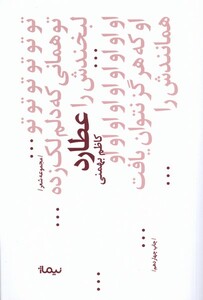 تو تو تو تو تو تو تو ...
تو همانی که دلم لک زده
لبخندش را ...
او او او او او او او او
او که هرگز نتوان یافت
همانندش را ...
عطارد
کاظم بهمنی
/ مجموعه شعر /
/ چاپ چهاردهم /
نیماژ